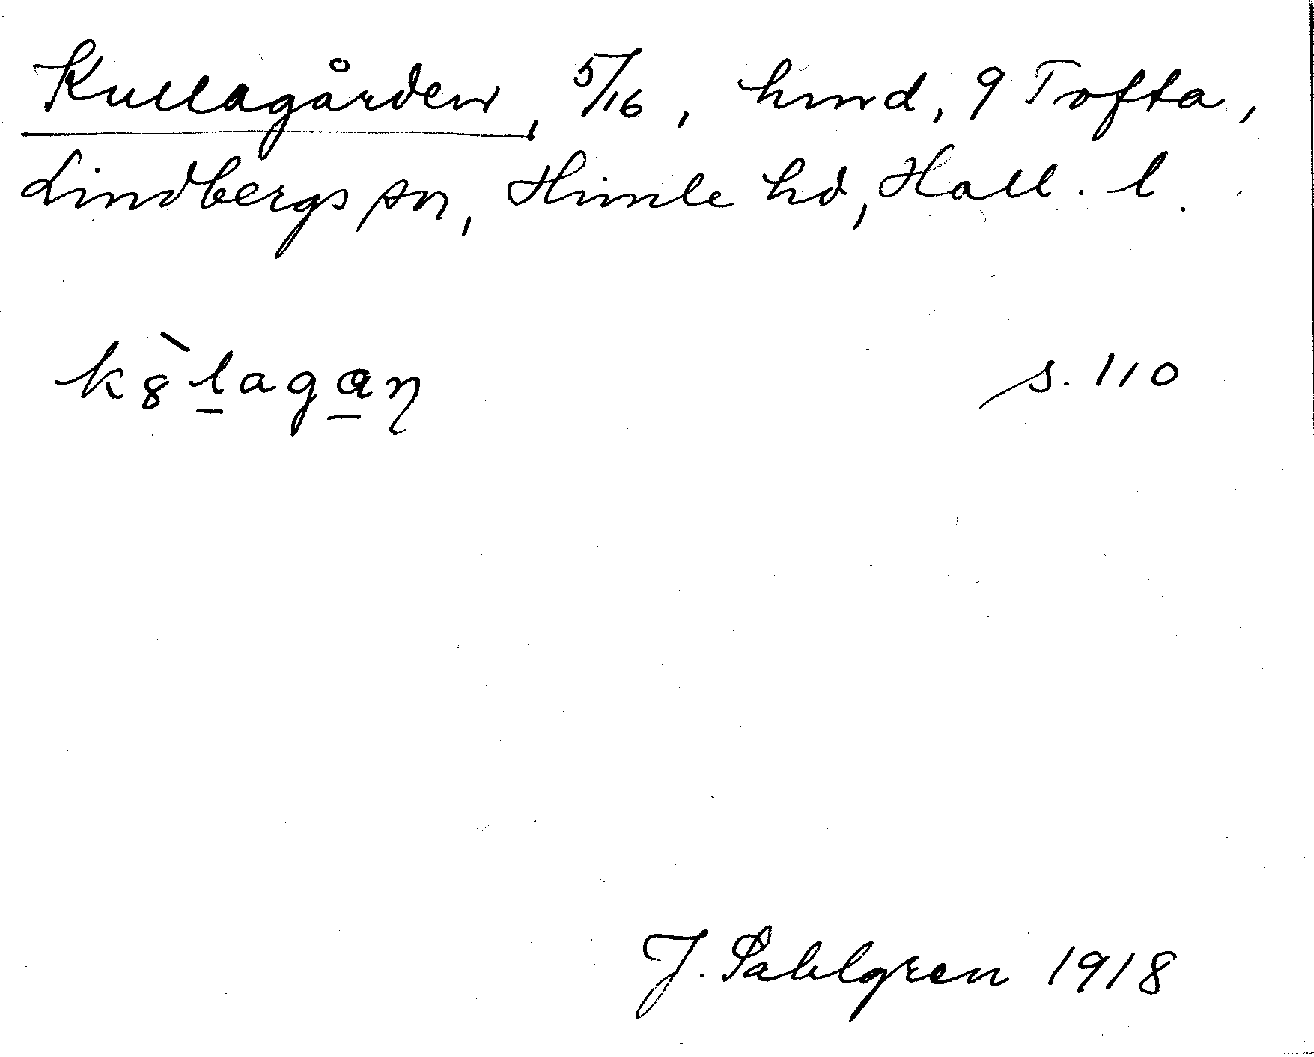 Kullagården, 5/16, hmd, 9 Tofta,
Lindbergs sn, Himle hd, Hall. l.
k8̀l̲aga̲ŋ s. 110
J. Sahlgren 1918